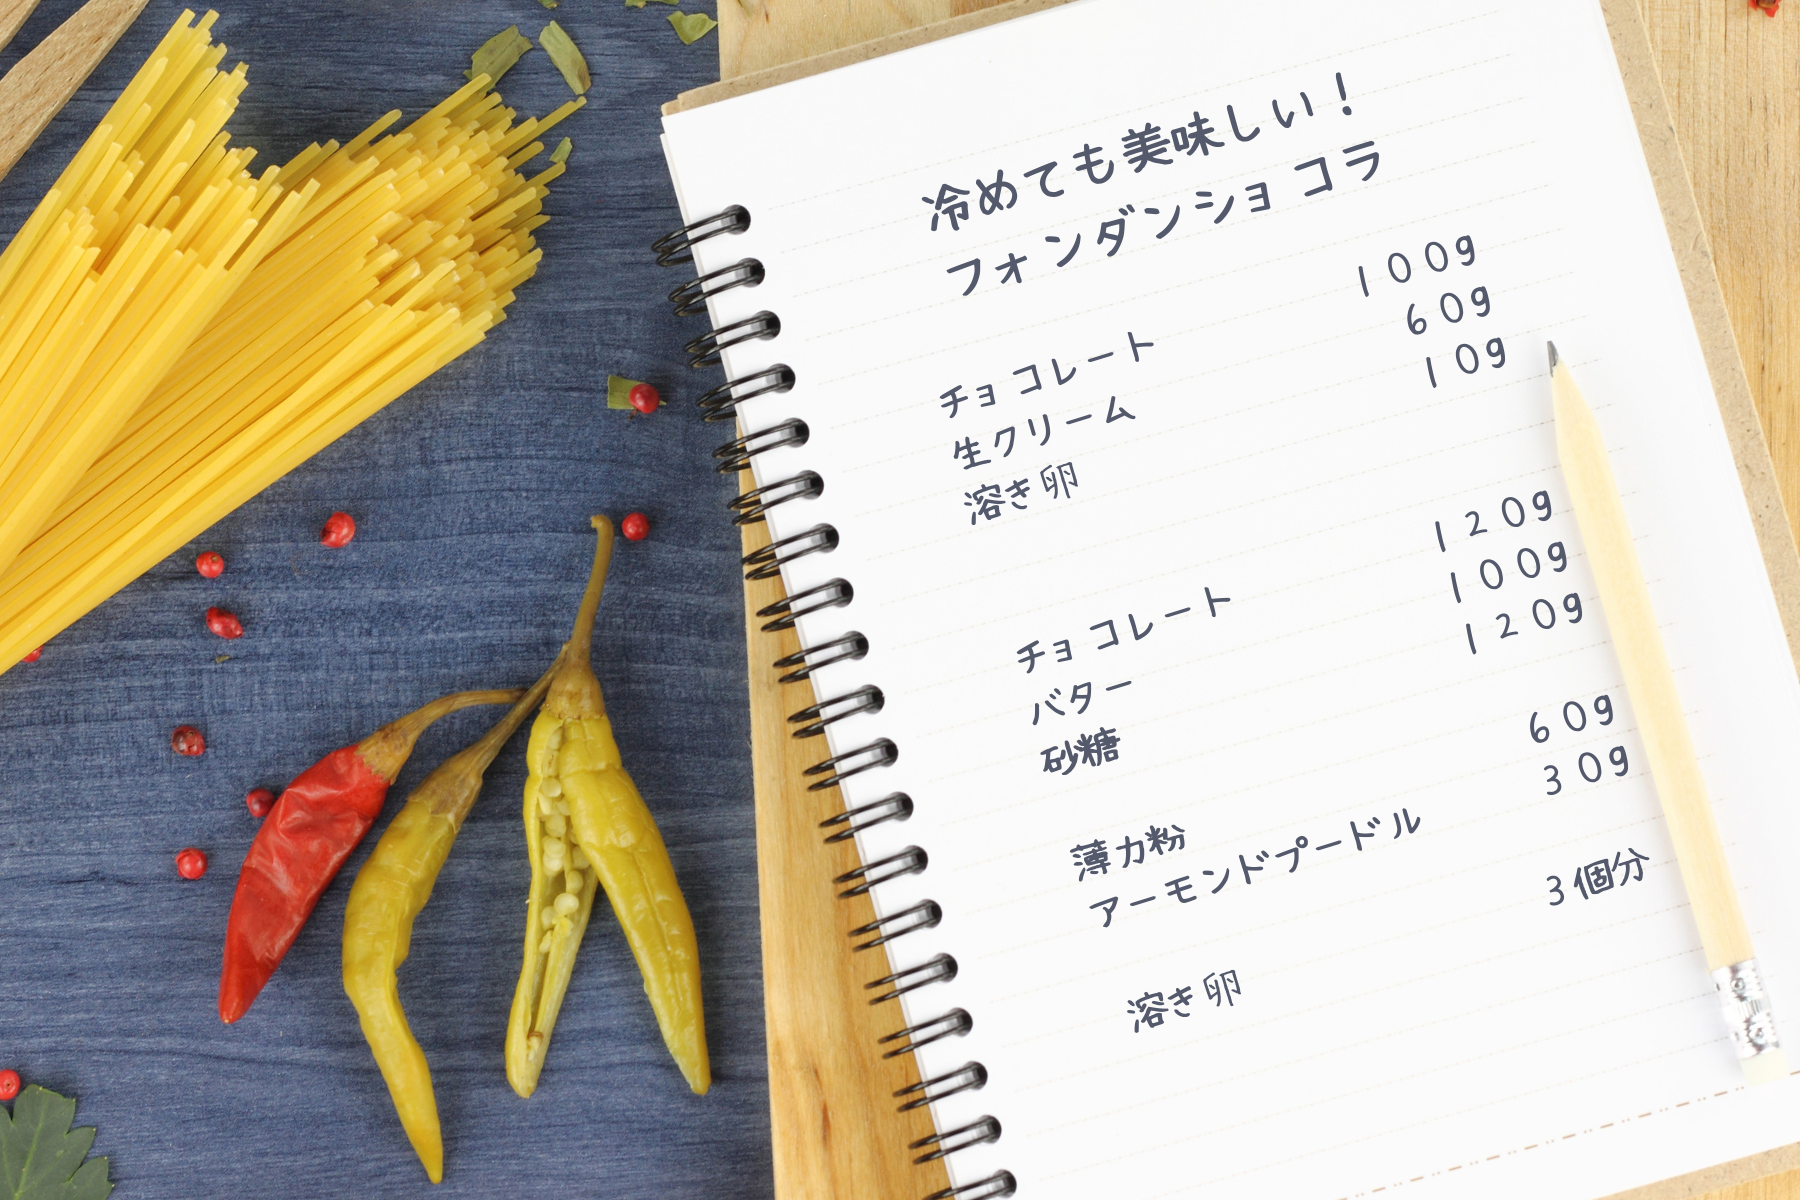 冷めても美味しい！
フォンダンショコラ
チョコレート 100g
生クリーム 60g
溶き卵 10g
チョコレート 120g
バター 100g
砂糖 120g
薄力粉 60g
アーモンドプードル 30g
溶き卵 3個分